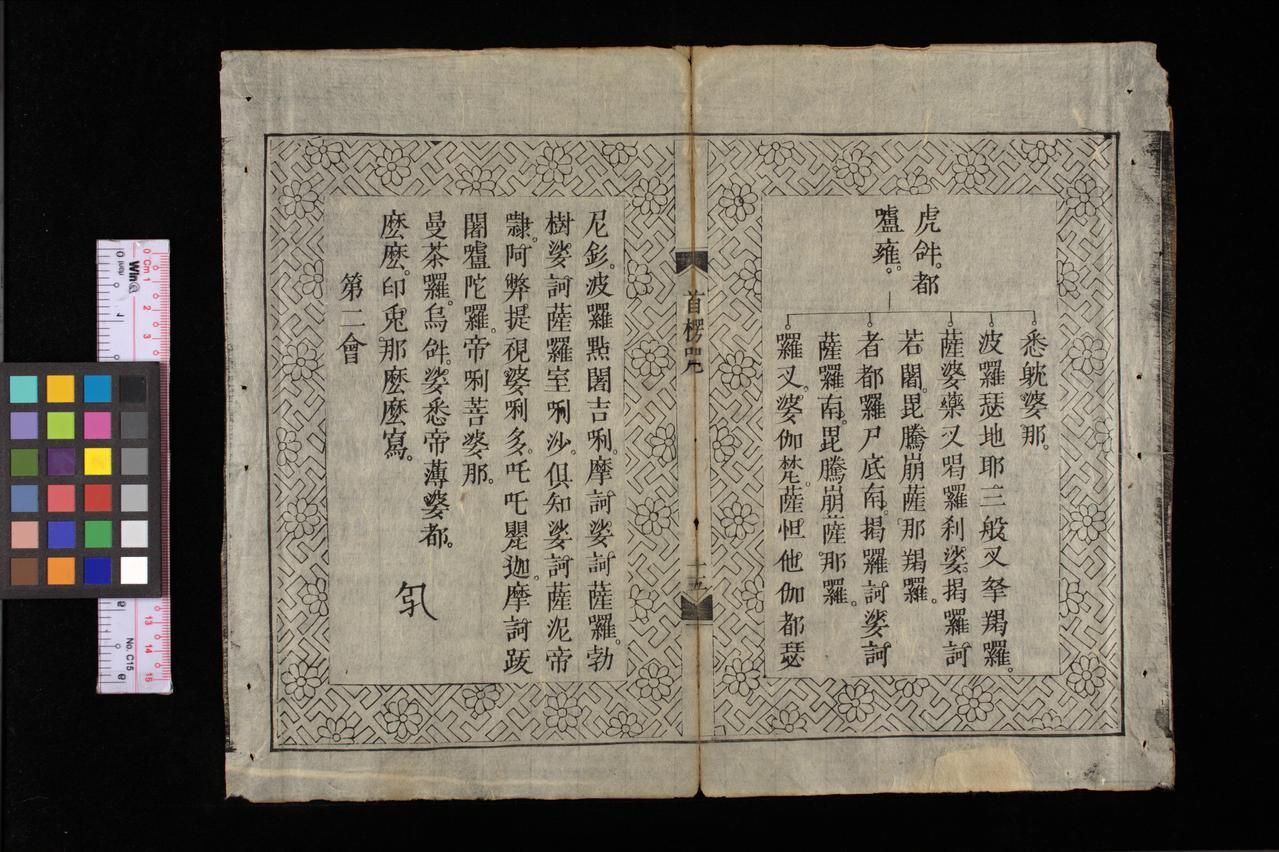 虎𤙖。都
嚧雍。
悉躭婆那。
波羅瑟地耶三般叉拏羯囉。
薩婆藥叉喝囉剎娑。揭囉訶
若闍。毘騰崩薩那羯囉。
者都囉尸底南。揭囉訶娑訶
薩囉南。毘騰崩薩那囉。
囉叉。婆伽梵。薩怛他伽都瑟
首楞咒
十五
尼釤。波囉點闍吉唎。摩訶娑訶薩囉。勃
樹娑訶薩囉室唎沙。俱知娑訶薩泥帝
㘑。阿弊提視婆唎多。吒吒甖迦。摩訶跋
闍嚧陀囉。帝唎菩婆那。
曼茶囉。烏𤙖。娑悉帝薄婆都。
麼麼。印兎那麼麼寫。
第二會